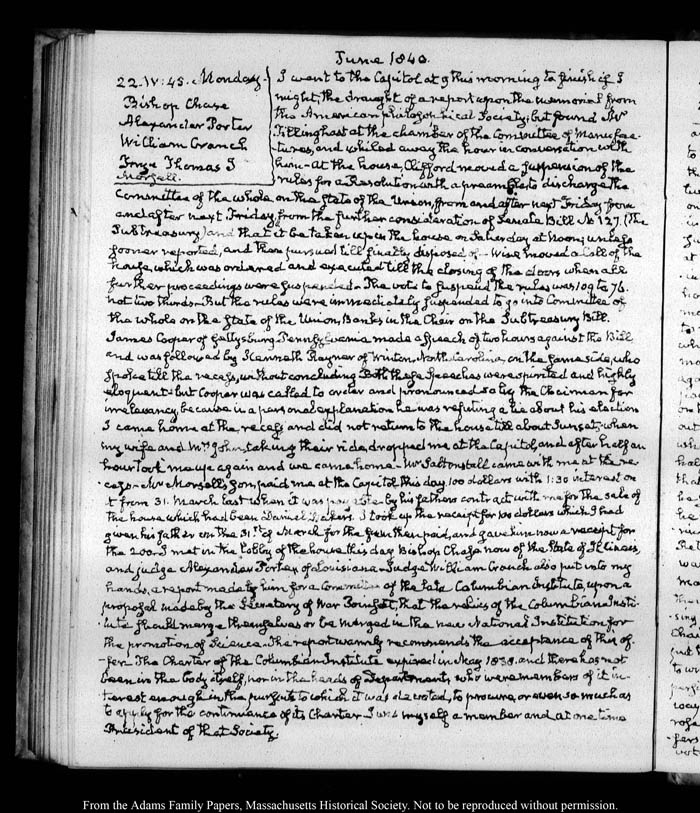 June 1840.
22. IV:45. Monday
Bishop Chase
Alexander Porter
William Cranch
Thomas S
Morsell.
I went to the Capitol at 9 this morning to finish if I
might, the draught of a report upon the memorial from
the American philosophical Society; but found Mr
Tillinghast at the chamber of the Committee of Manufac-
tures, and whiled away the hour in conversation with
him - At the house, Clifford moved a suspension of the
rules for a Resolution with a preamble to discharge the
Committee of the whole on the state of the Union, from and after next Friday from
and after next Friday, from the further consideration of Senate Bill No 127. (The
Subtreasury) and that it be taken up in the house on Saturday at Noon; unless
sooner reported, and then pursued till finally disposed of - Wise moved a Call of the
house, which was ordered and executed till the closing of the doors when all
further proceedings were suspended. The vote to suspend the rules was 109 to 76.
not two thirds - But the rules were immediately suspended to go into Committee of
the whole on the state of the Union, Banks in the Chair on the Subtreasury Bill.
James Cooper of Gettysburg Pennsylvania made a Speach of two hours against the Bill
and was followed by Kenneth Rayner of Winton, North Carolina, on the same side, who
spoke till the recess, without concluding Both these Speaches were spirited and highly
eloquent: but Cooper was called to order and pronounced so by the Chairman for
irrelevancy, because in a personal explanation he was refuting a lie about his election
I came home at the recess and did not return to the house till about Sunset, when
my wife and Mrs John, taking their ride, dropped me at the Capitol, and after half an
hour took me up again and we came home - Mr Saltonstall came with me at the re-
cess - Mr Morsell's son, paid me at the Capitol this day 100 dollars with 1:30 interest on
it from 31. March last when it was payable by his fathers contract with me for the sale of
the house which had been Daniel I took up the receipt for 100 dollars which I had
given his father on the 31st of March for the then paid, and gave him now a receipt for
the 200. I met in the lobby of the house this day Bishop Chase now of the State of Illinois,
and judge Alexander Porter of Louisiana. Judge William Cranch also put into my
hands, a report made by him for a Committee of the late Columbian Institute, upon a
proposal made by the Secretary of War Poinsett, that the relics of the Columbian Insti-
tute should merge themselves or be merged in the new National Institution for
the promotion of Science. The report warmly recommends the acceptance of this of-
fer. The Charter of the Columbian Institute expired in May 1838. and there has not
been in the body itself, nor in the heads of Departments, who were members of it in-
terest enough in the pursuits to which it was devoted, to procure, or even so much as
to apply for the continuance of its Charter I was myself a member and at one time
President of that Society.
From the Adams Family Papers, Massachusetts Historical Society. Not to be reproduced without permission.